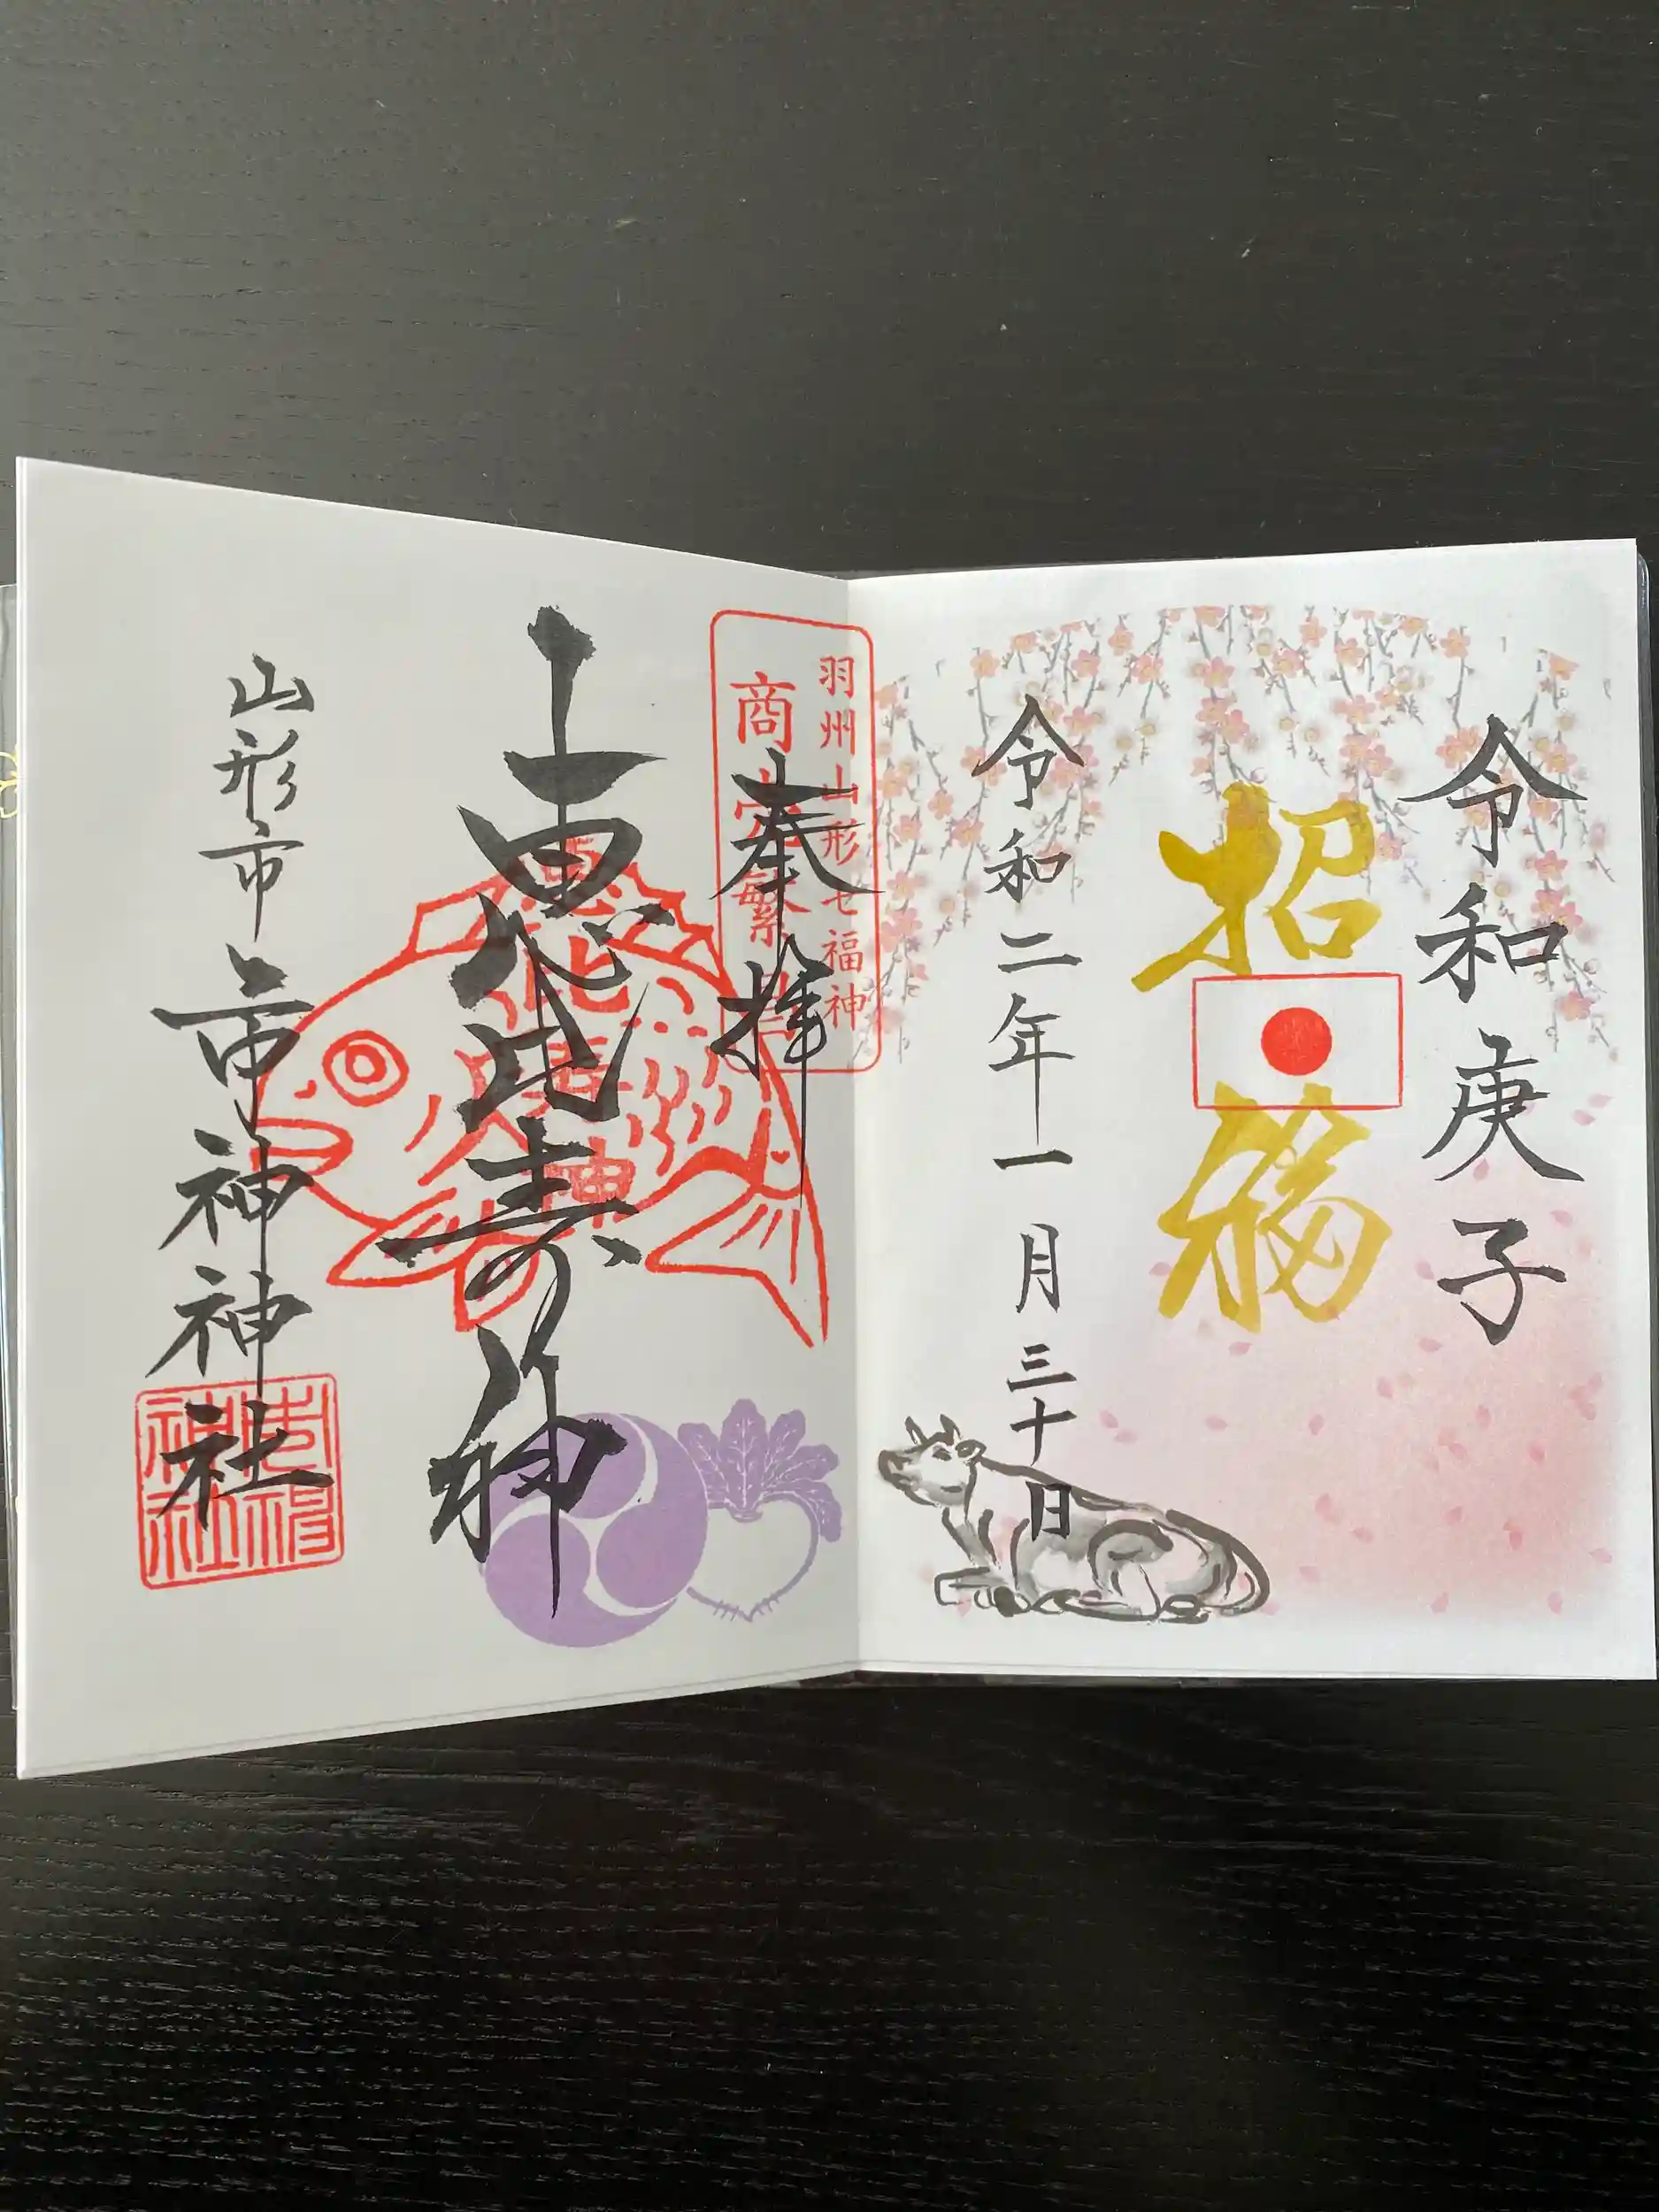 令和庚子
招福
令和二年一月三十日
羽州山形七福神
商売繁昌
奉拝
恵比寿神
山形市
市神神社